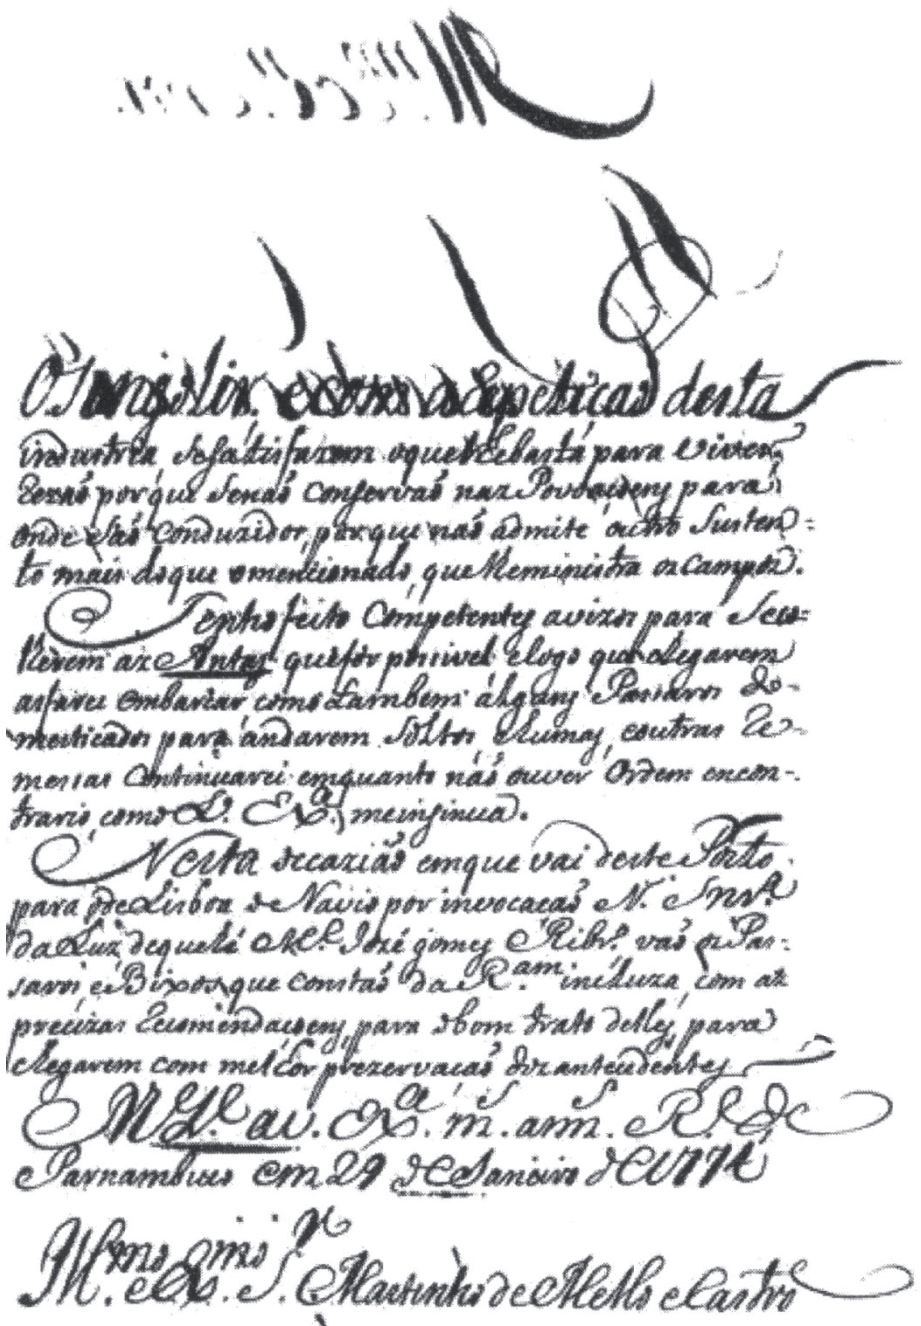 desta
industria sesatisfazem oque lhe bastá para viven,
porque senaõ Conservaõ naz Povoaçoens para
onde saõ Conduzidos, porque naõ admite outro susten=
to mais doque o mencionado, que lhe ministra os Campos.
Tenho feito Competentes avizos para Seco=
lherem az Antas que for possivel e logo que chegarem
asfarei embarcar como tambem alguns Passaros do-
mesticados para andarem soltos e humas, e outras Re-
messas Continuarei emquanto naõ ouver Ordem encon-
trario, como V. Exª. meinsinua.
Nesta occaziaõ emque vai deste Porto
para ode Lisboa o Navio por invocaçaõ N. Snrª.
da Luz dequehé Me. Jozé gomes Ribrº. vaõ os Pas-
saros e Bixos, que constaõ da Ram. incluza, com az
precizas Recomendaçoens, para obom trato delles, para
chegarem com melhor prezervaçaõ dozantecedentes
Exª. ms. anns.
Parnambuco em 29 de Janeiro de 1774
Illmo. e Exmo. Sr. Martinho de Mello e Castro